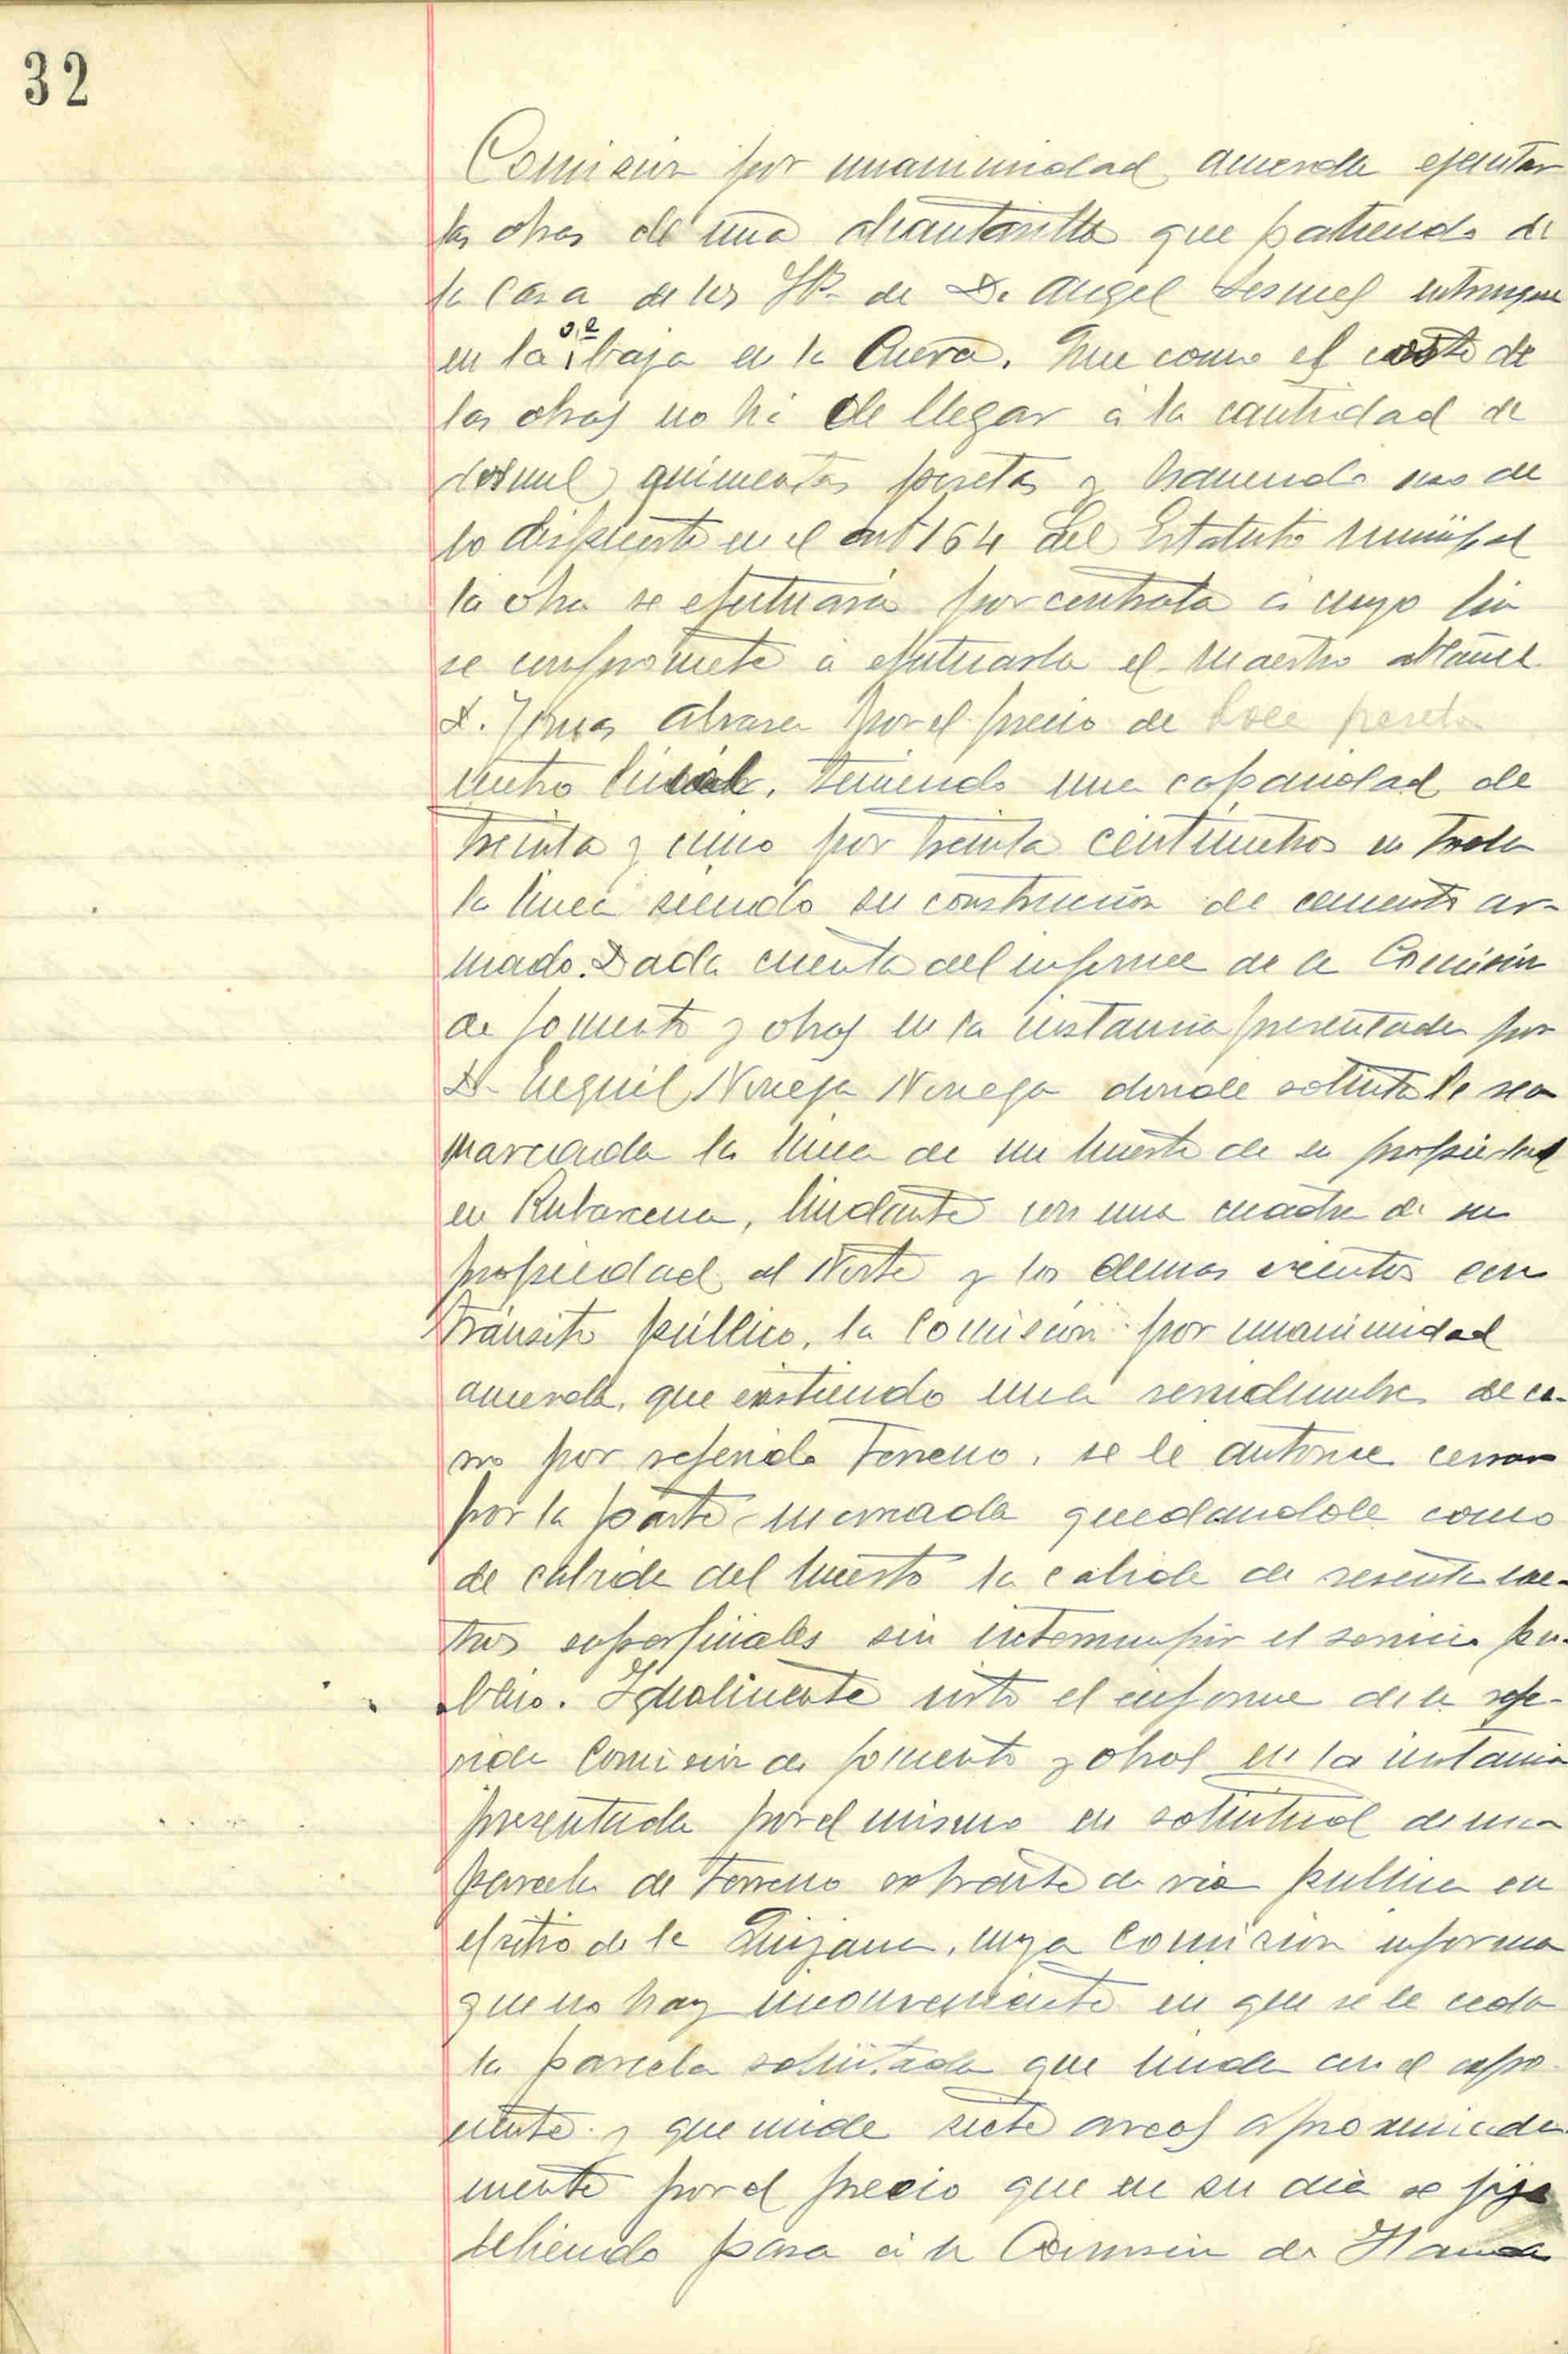 32
Comision por unanimidad acuerda ejecutar
las obras de una alcantarilla que partiendo de
la casa de los Srs. de D. Angel Lesmes entronque
en la baja en la Cueva. Que como el coste de
las obras no ha de llegar á la cantidad de
dosmil quinientas pesetas y haciendo uso de
lo dispuesto en el art 164 del Estatuto municipal
la obra se efectuará por contrata á cuyo fin
se compromete á efectuarla el maestro albañil
D. Alvarez por el precio de doce pesetas
metro lineal, teniendo una capacidad de
treinta y cinco por treinta centimetros en toda
la linea siendo su construcción de cemento ar-
mado. Dada cuenta del informe de la Comisión
de fomento y obras en la instancia presentada por
D. Ezequiel Noriega Noriega donde solicita le sea
marcada la linea de un huerto de su propiedad
en Rubarcena, lindante con una cuadra de su
propiedad al Norte y los demas vientos con
tránsito público, la Comisión por unanimidad
acuerda, que existiendo una servidumbre de ca-
rro por referido terreno, se le autorice cerrar
por la parte quedandole como
de cabida del huerto la cabida de sesenta me-
tros superficiales sin interrumpir el servicio pu-
blico. Igualmente visto el informe de la refe-
rida Comision de fomento y obras en la instancia
presentada por el mismo en solicitud de una
parcela de terreno sobrante de via publica en
el sitio de la Quizana, cuya Comisión informa
que no hay inconveniente en que se le ceda
la parcela solicitada que linda con el expo-
nente y que mide siete areas aproximada-
mente por el precio que en su dia se fije
debiendo pasar á la Comision de Hacienda